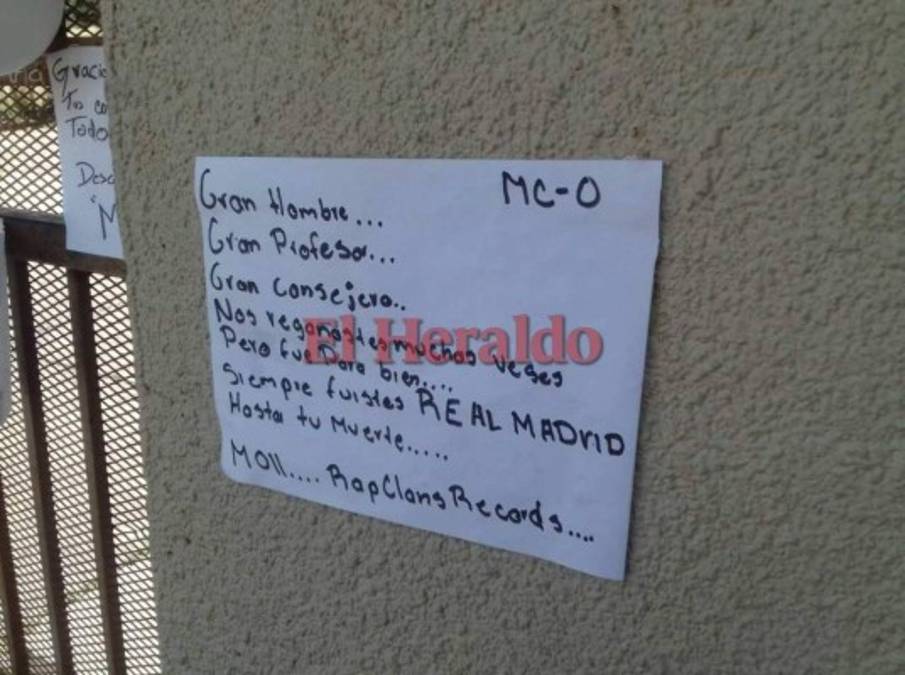 Gracia
Tu co
Todo
Desc
"M
MC-O
Gran Hombre...
Gran Profesor...
Gran Consejero..
Nos reganastes muchas veses
Pero fue para bien....
Siempre fuistes REAL MADRID
Hasta tu Muerte.....
MOII.... RapClansRecords....
El Heraldo